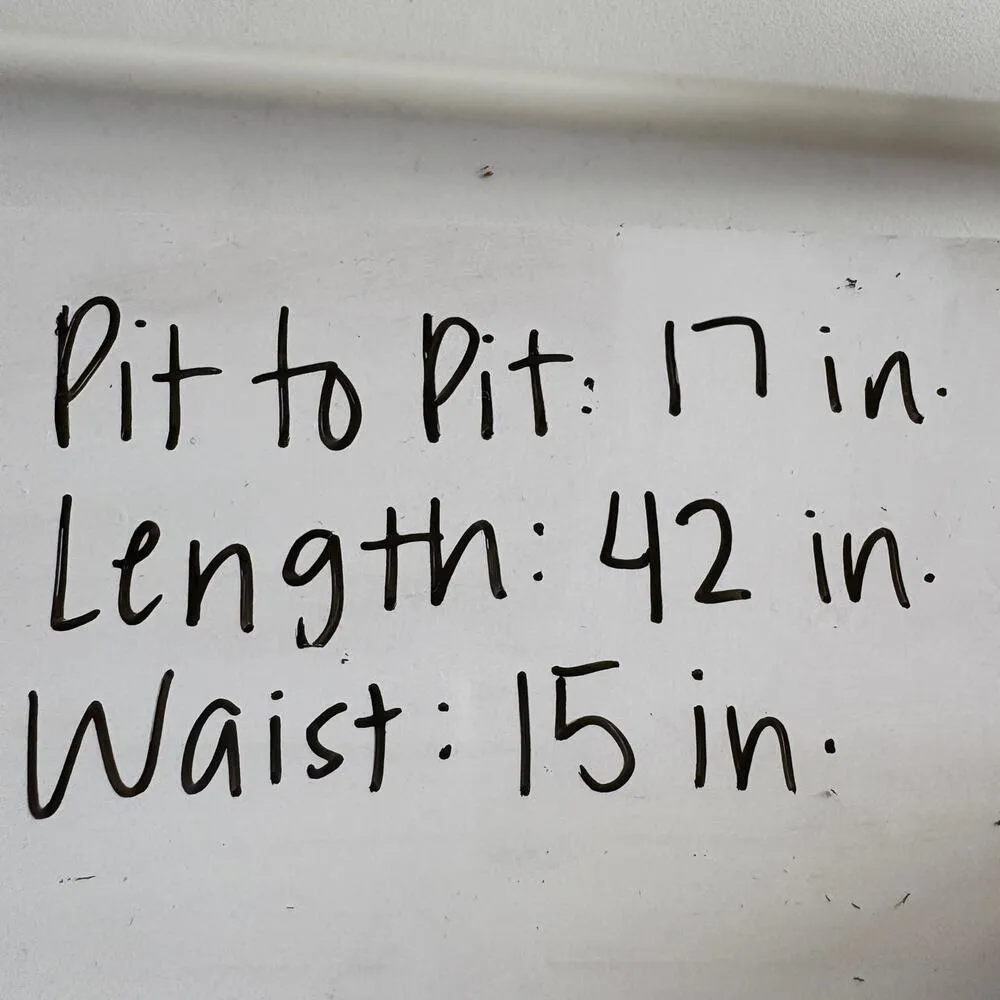 Pit to Pit: 17 in.
Length: 42 in.
Waist: 15 in.